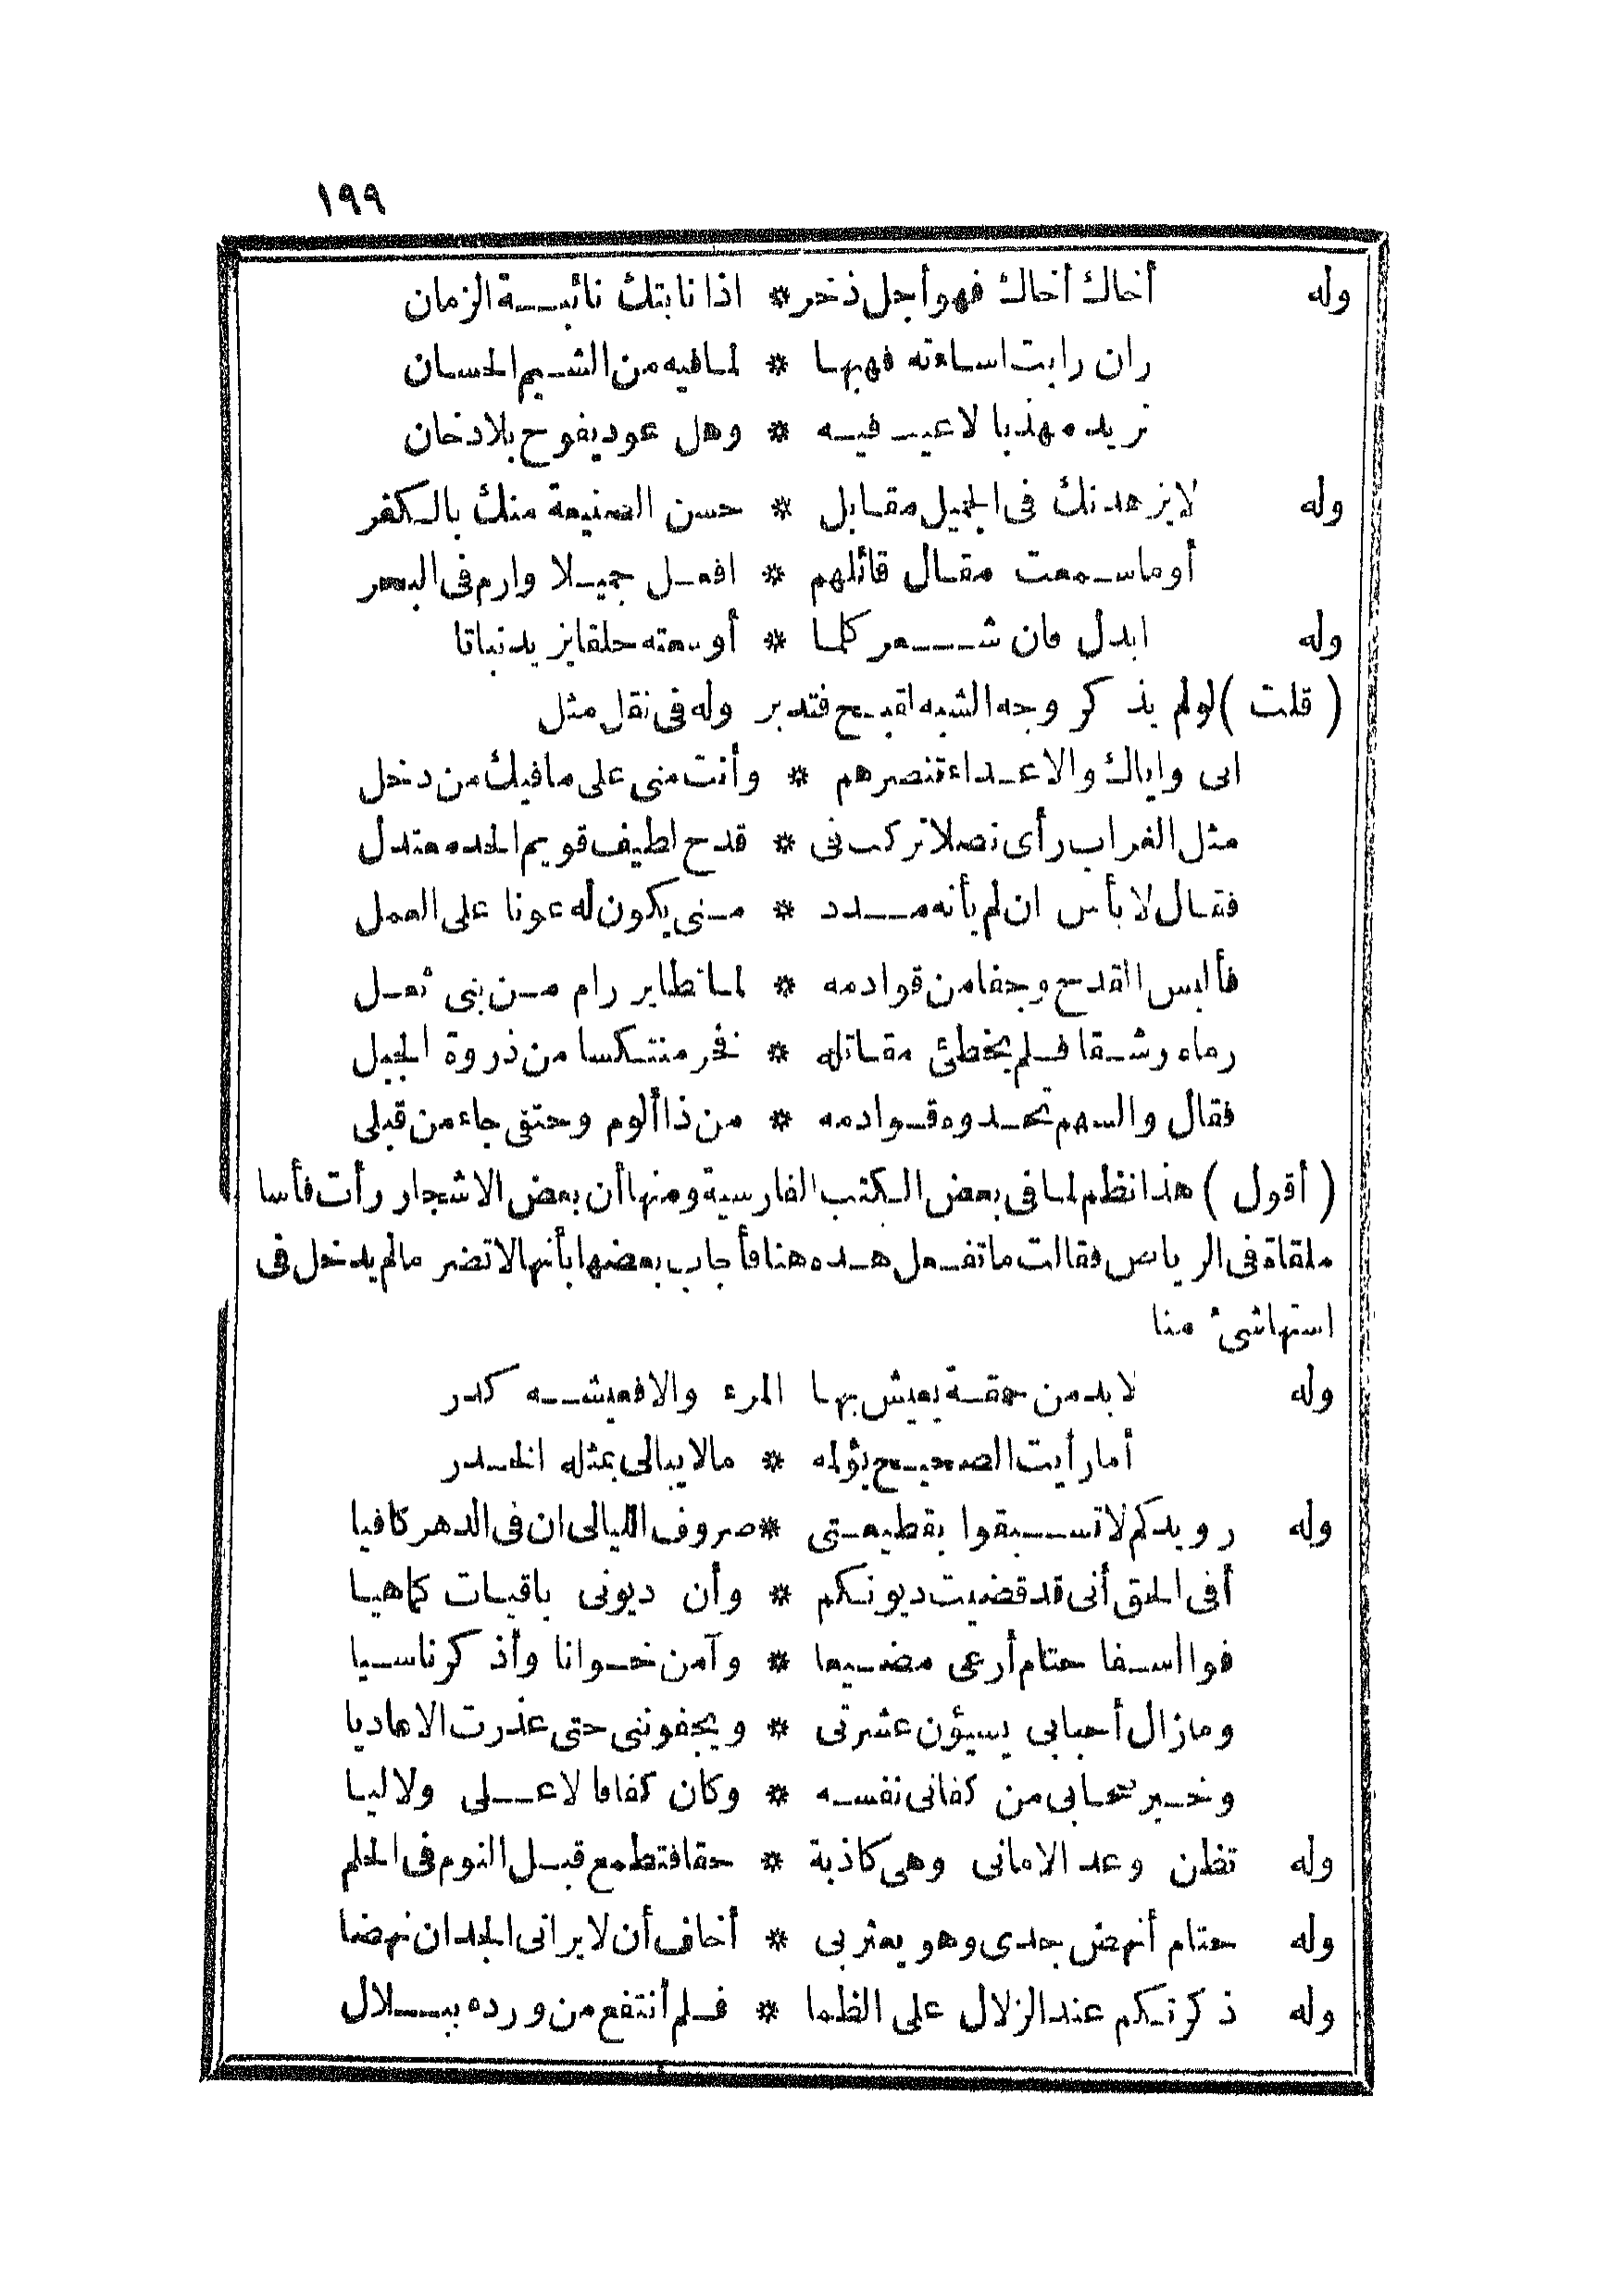 ١٩٩
وله أخاك أخاك فهو أجل ذخر * اذا نابتك نائبة الزمان
وان رابت اساءته فهبها * لما فيه من الشيم الحسان
تريد مهذبا لا عيب فيه * وهل عود يفوح بلا دخان
وله لا يزهدنك فى الجميل مقابل * حسن الصنيعة منك بالكفر
أوما سمعت مقال قائلهم * افعل جميلا وارم فى البحر
وله ابذل فان شعر كلما * أوسعته حلقا يزيد نباتا
( قلت ) لو لم يذكر وجه الشبه لقبح فتدبر وله فى نقل مثل
انى واياك والاعداء تنصرهم * وأنت منى على ما فيك من دخل
مثل الغراب رأى نصلا تركب فى * قدح لطيف قويم الحد معتدل
فقال لا بأس ان لم يأته مدد * منى يكون له عونا على العمل
فألبس القدح وحفا من قوادمه * لما تطاير رام من بنى ثعل
رماه رشقا فلم يخطئ مقاتله * فخر منتكسا من ذروة الجبل
فقال والسهم تحدوه قوادمه * من ذا ألوم وحتفى جاء من قبلى
( أقول ) هذا نظم لما فى بعض الكتب الفارسية ومنها أن بعض الاشجار رأت فأسا
ملقاة فى الرياض فقالت ما تفعل هذه هنا فأجاب بعضها بأنها لا تضر ما لم يدخل فى
استها شئ منا
وله لا بد من حمقة يعيش بها المرء والا فعيشه كدر
أما رأيت الصحيح يؤلمه * ما لا يبالى بمثله الخدر
وله رويدكم لا تسبقوا بقطيعتى * صروف الليالى ان فى الدهر كافيا
أفى الحق أنى قد قضيت ديونكم * وأن ديونى باقيات كما هيا
فوا أسفا حتام أرعى مضيعا * وآمن خوانا وأذكر ناسيا
وما زال أحبابى يسيؤن عشرتى * ويجفوننى حتى عذرت الاعاديا
وخير صحابى من كفانى نفسه * وكان كفافا لا على ولا ليا
وله تظن وعد الامانى وهى كاذبة * حقا فتطمع قبل النوم فى الحلم
وله حتام أنهض جدى وهو يعثر بى * أخاف أن لا يرانى الجد ان نهضا
وله ذكرتكم عند الزلال على الظما * فلم أنتفع من ورده ببلال